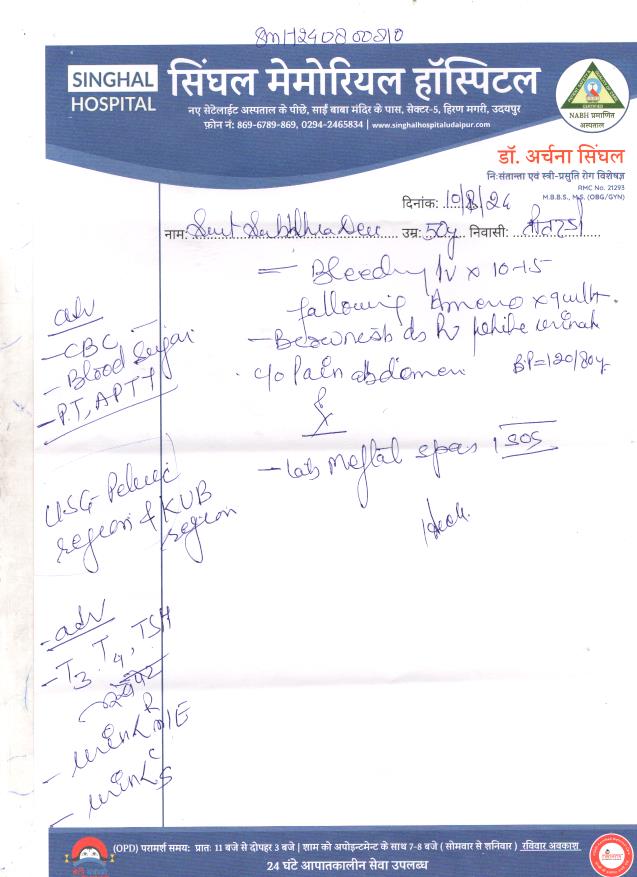 SMH240800810
SINGHAL
HOSPITAL
सिंघल मेमोरियल हॉस्पिटल
नए सेटेलाईट अस्पताल के पीछे, साईं बाबा मंदिर के पास, सेक्टर-5, हिरण मगरी, उदयपुर
फ़ोन नं: 869-6789-869, 0294-2465834 | www.singhalhospitaludaipur.com
NABH प्रमाणित
अस्पताल
डॉ. अर्चना सिंघल
नि:संतानता एवं स्त्री-प्रसुति रोग विशेषज्ञ
RMC No. 21293
M.B.B.S., M.S. (OBG/GYN)
दिनांक: 10/8/24
नाम: Smt उम्र: 50y निवासी:
Bleeding P/V x 10-15
following Ameno x
adv
- CBC
- Blood Sugar
- P.T, APTT
c/o Pain abdomen BP=120/80
- tab Meftal spas 1 SOS
USG-Pelvic
region & KUB
region
adv
- T3, T4, TSH
- urine R/M/E
- urine C/S
(OPD) परामर्श समय: प्रातः 11 बजे से दोपहर 3 बजे | शाम को अपोइन्टमेन्ट के साथ 7-8 बजे ( सोमवार से शनिवार ) रविवार अवकाश
24 घंटे आपातकालीन सेवा उपलब्ध